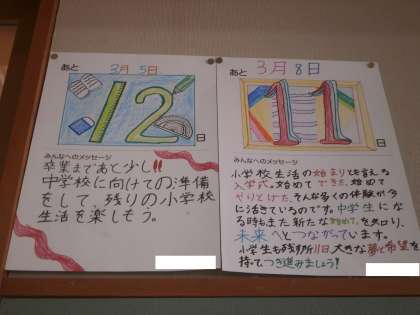 3月 5日
あと
12
日
みんなへのメッセージ
卒業まであと少し!!
中学校に向けての準備
をして、残りの小学校
生活を楽しもう。
3月8日
あと
11
日
みんなへのメッセージ
小学校生活の始まりとも言える
入学式。始めてできた、始めて
やりとげた、そんな多くの体験が今
に活きているのです。中学生にな
る時もまた新たな始めて。を知り、
未来へとつながっています。
小学生も残り所11日、大きな夢と希望を
持ってつき進みましょう!